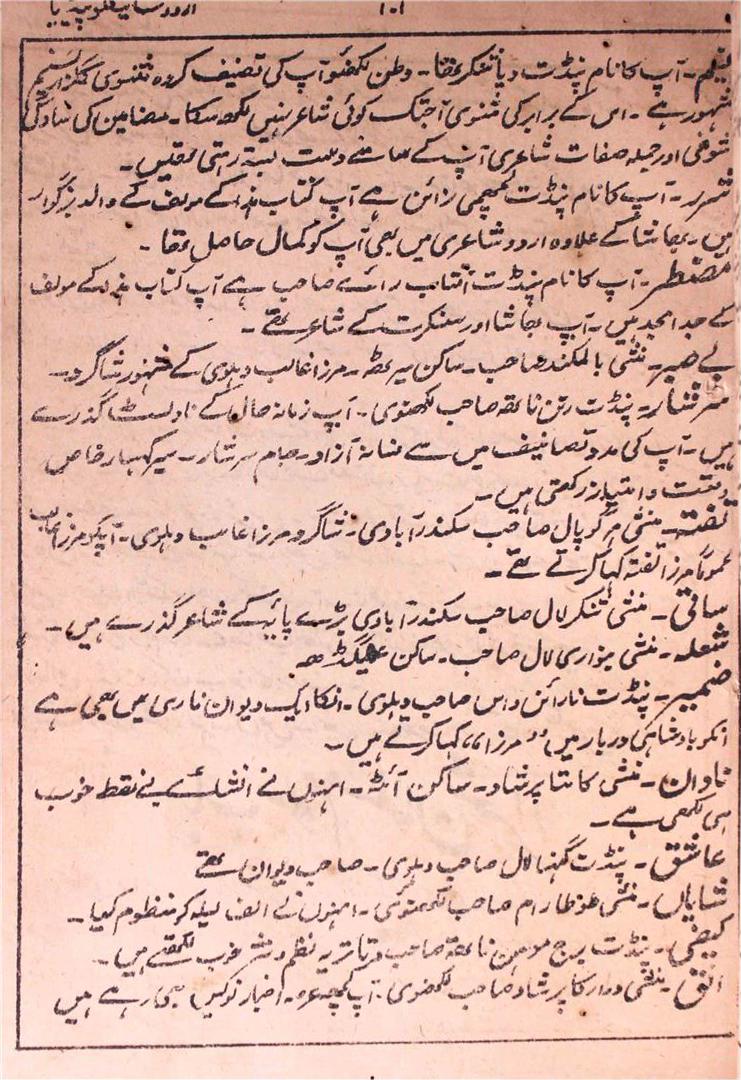 ۱۰۱ اردو سائیکلوپیڈیا
نسیم۔ آپ کا نام پنڈت دیا شنکر تھا۔ وطن لکھنؤ آپ کی تصنیف کردہ مثنوی گلزار نسیم
مشہور ہے۔ اس کے برابر کی مثنوی آجتک کوئی شاعر نہیں لکھ سکا۔ مضامین کی سادگی
شوخی اور جملہ صفات شاعری آپ کے سامنے دست بستہ رہتی تھیں۔
شرر۔ آپ کا نام پنڈت لچھمی نرائن ہے آپ کتاب ہذا کے مولف کے والد بزرگوار
ہیں۔ بھاشا کے علاوہ اردو شاعری میں بھی آپ کو کمال حاصل تھا۔
مضطر۔ آپ کا نام پنڈت آفتاب رائے صاحب ہے آپ کتاب ہذا کے مولف
کے جد امجد ہیں۔ آپ بھاشا اور سنسکرت کے شاعر تھے۔
بے صبر۔ منشی بالمکند صاحب۔ ساکن میرٹھ۔ مرزا غالب دہلوی کے مشہور شاگرد۔
سرشار۔ پنڈت رتن ناتھ صاحب لکھنوی۔ آپ زمانہ حال کے ناولسٹ گذرے
ہیں۔ آپ کی تصانیف میں سے فسانہ آزاد۔ جام سرشار۔ سیر کہسار خاص
وقعت و امتیاز رکھتی ہیں۔
تفتہ۔ منشی ہرگوپال صاحب سکندرآبادی۔ شاگرد مرزا غالب دہلوی۔ آپکو مرزا غالب
عموماً مرزا تفتہ کہا کرتے تھے۔
ساقی۔ منشی شنکر لال صاحب سکندرآبادی بڑے پایہ کے شاعر گذرے ہیں۔
شعلہ۔ منشی بنواری لال صاحب۔ ساکن علیگڑھ
ضمیر۔ پنڈت نارائن داس صاحب دہلوی۔ انکا ایک دیوان فارسی میں بھی ہے
انکو بادشاہی دربار میں ”مرزا“ کہا کرتے ہیں۔
نادان۔ منشی کانتا پرشاد۔ ساکن آنٹہ۔ انہوں نے انشائے بے نقط خوب
ہی لکھی ہے۔
عاشق۔ پنڈت گھنیا لال صاحب دہلوی۔ صاحب دیوان تھے
شایاں۔ منشی طوطا رام صاحب لکھنوی۔ انہوں نے الف لیلہ کو منظوم کیا۔
کیفی۔ پنڈت برج موہن ناتھ صاحب دتاتریہ نظم و نثر خوب لکھتے ہیں۔
افق۔ منشی دوارکا پرشاد صاحب لکھنوی۔ آپ کچھ عرصہ۔ اخبار نویس بھی رہے ہیں